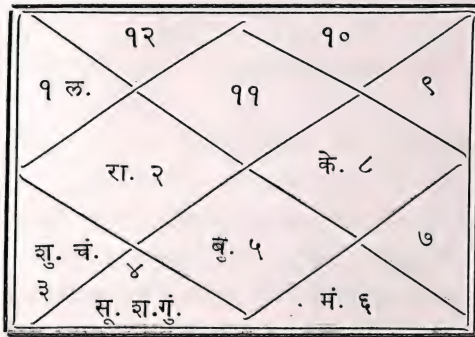 १२ १०
१ ल. ११ ९
रा. २ के. ८
शु. चं. बु. ५ ७
४
३ सू. श.गुं. मं. ६